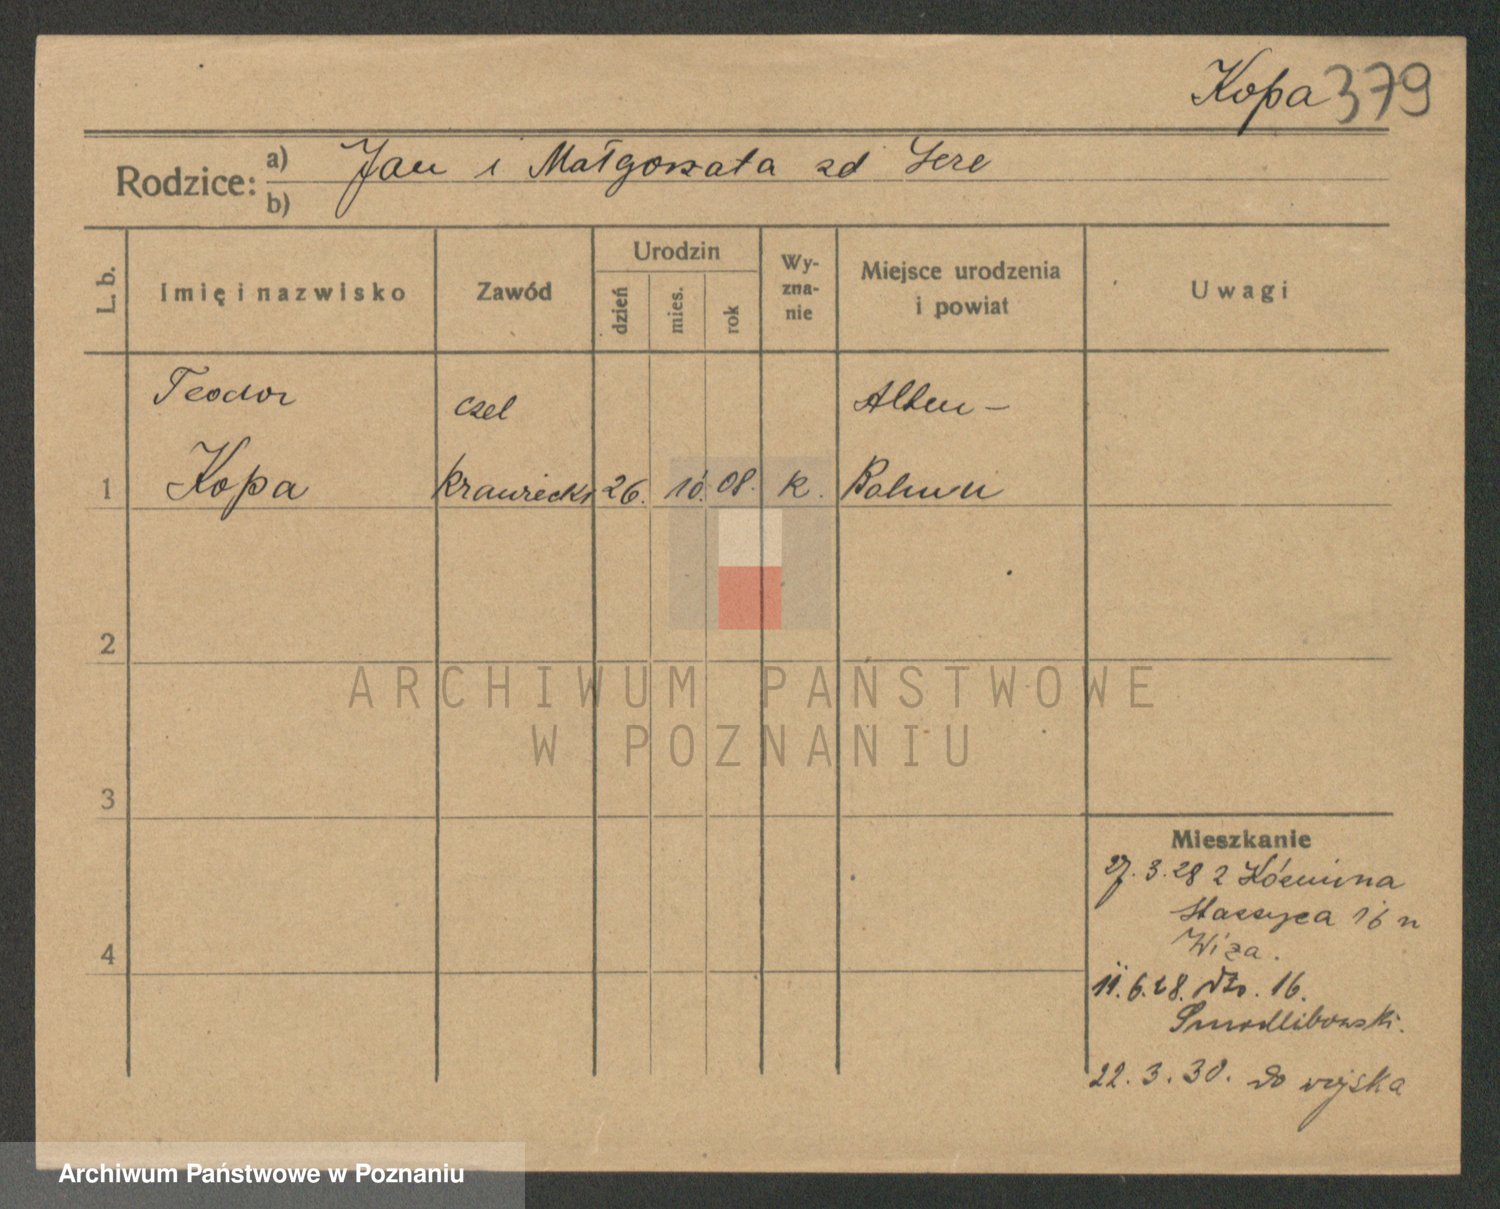 Kopa 379
Rodzice:
a) Jan i Małgorzata zd Sere
b)
L. b.
Imię i nazwisko
Zawód
Urodzin
dzień
mies.
rok
Wy-
zna-
nie
Miejsce urodzenia
i powiat
Uwagi
Teodor
czel
Alten-
1
Kopa
krawiecki
26.
10.
08.
k.
Bochum
2
3
4
Mieszkanie
27.3.28 z Koźmina
Staszyca 16 u
Wiza.
11.6.28. 16.
Smodlibowski.
22.3.30. do wojska
ARCHIWUM PAŃSTWOWE
W POZNANIU
Archiwum Państwowe w Poznaniu